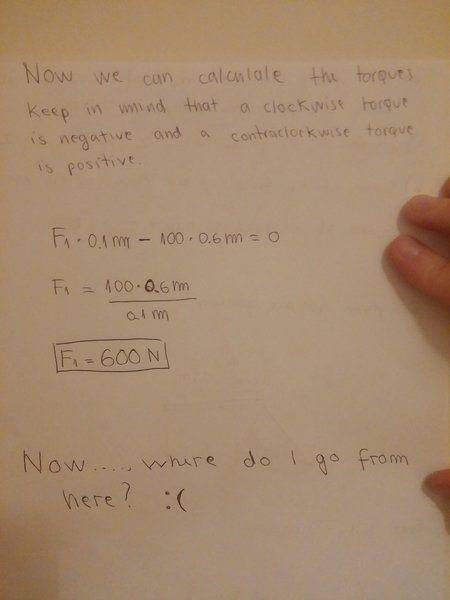 Now we can calculate the torques
Keep in mind that a clockwise torque
is negative and a contraclockwise torque
is positive.
F₁ · 0.1m − 100 · 0.6m = 0
F₁ = 100 · 0.6m
0.1m
F₁ = 600 N
Now...., where do I go from
here? :(